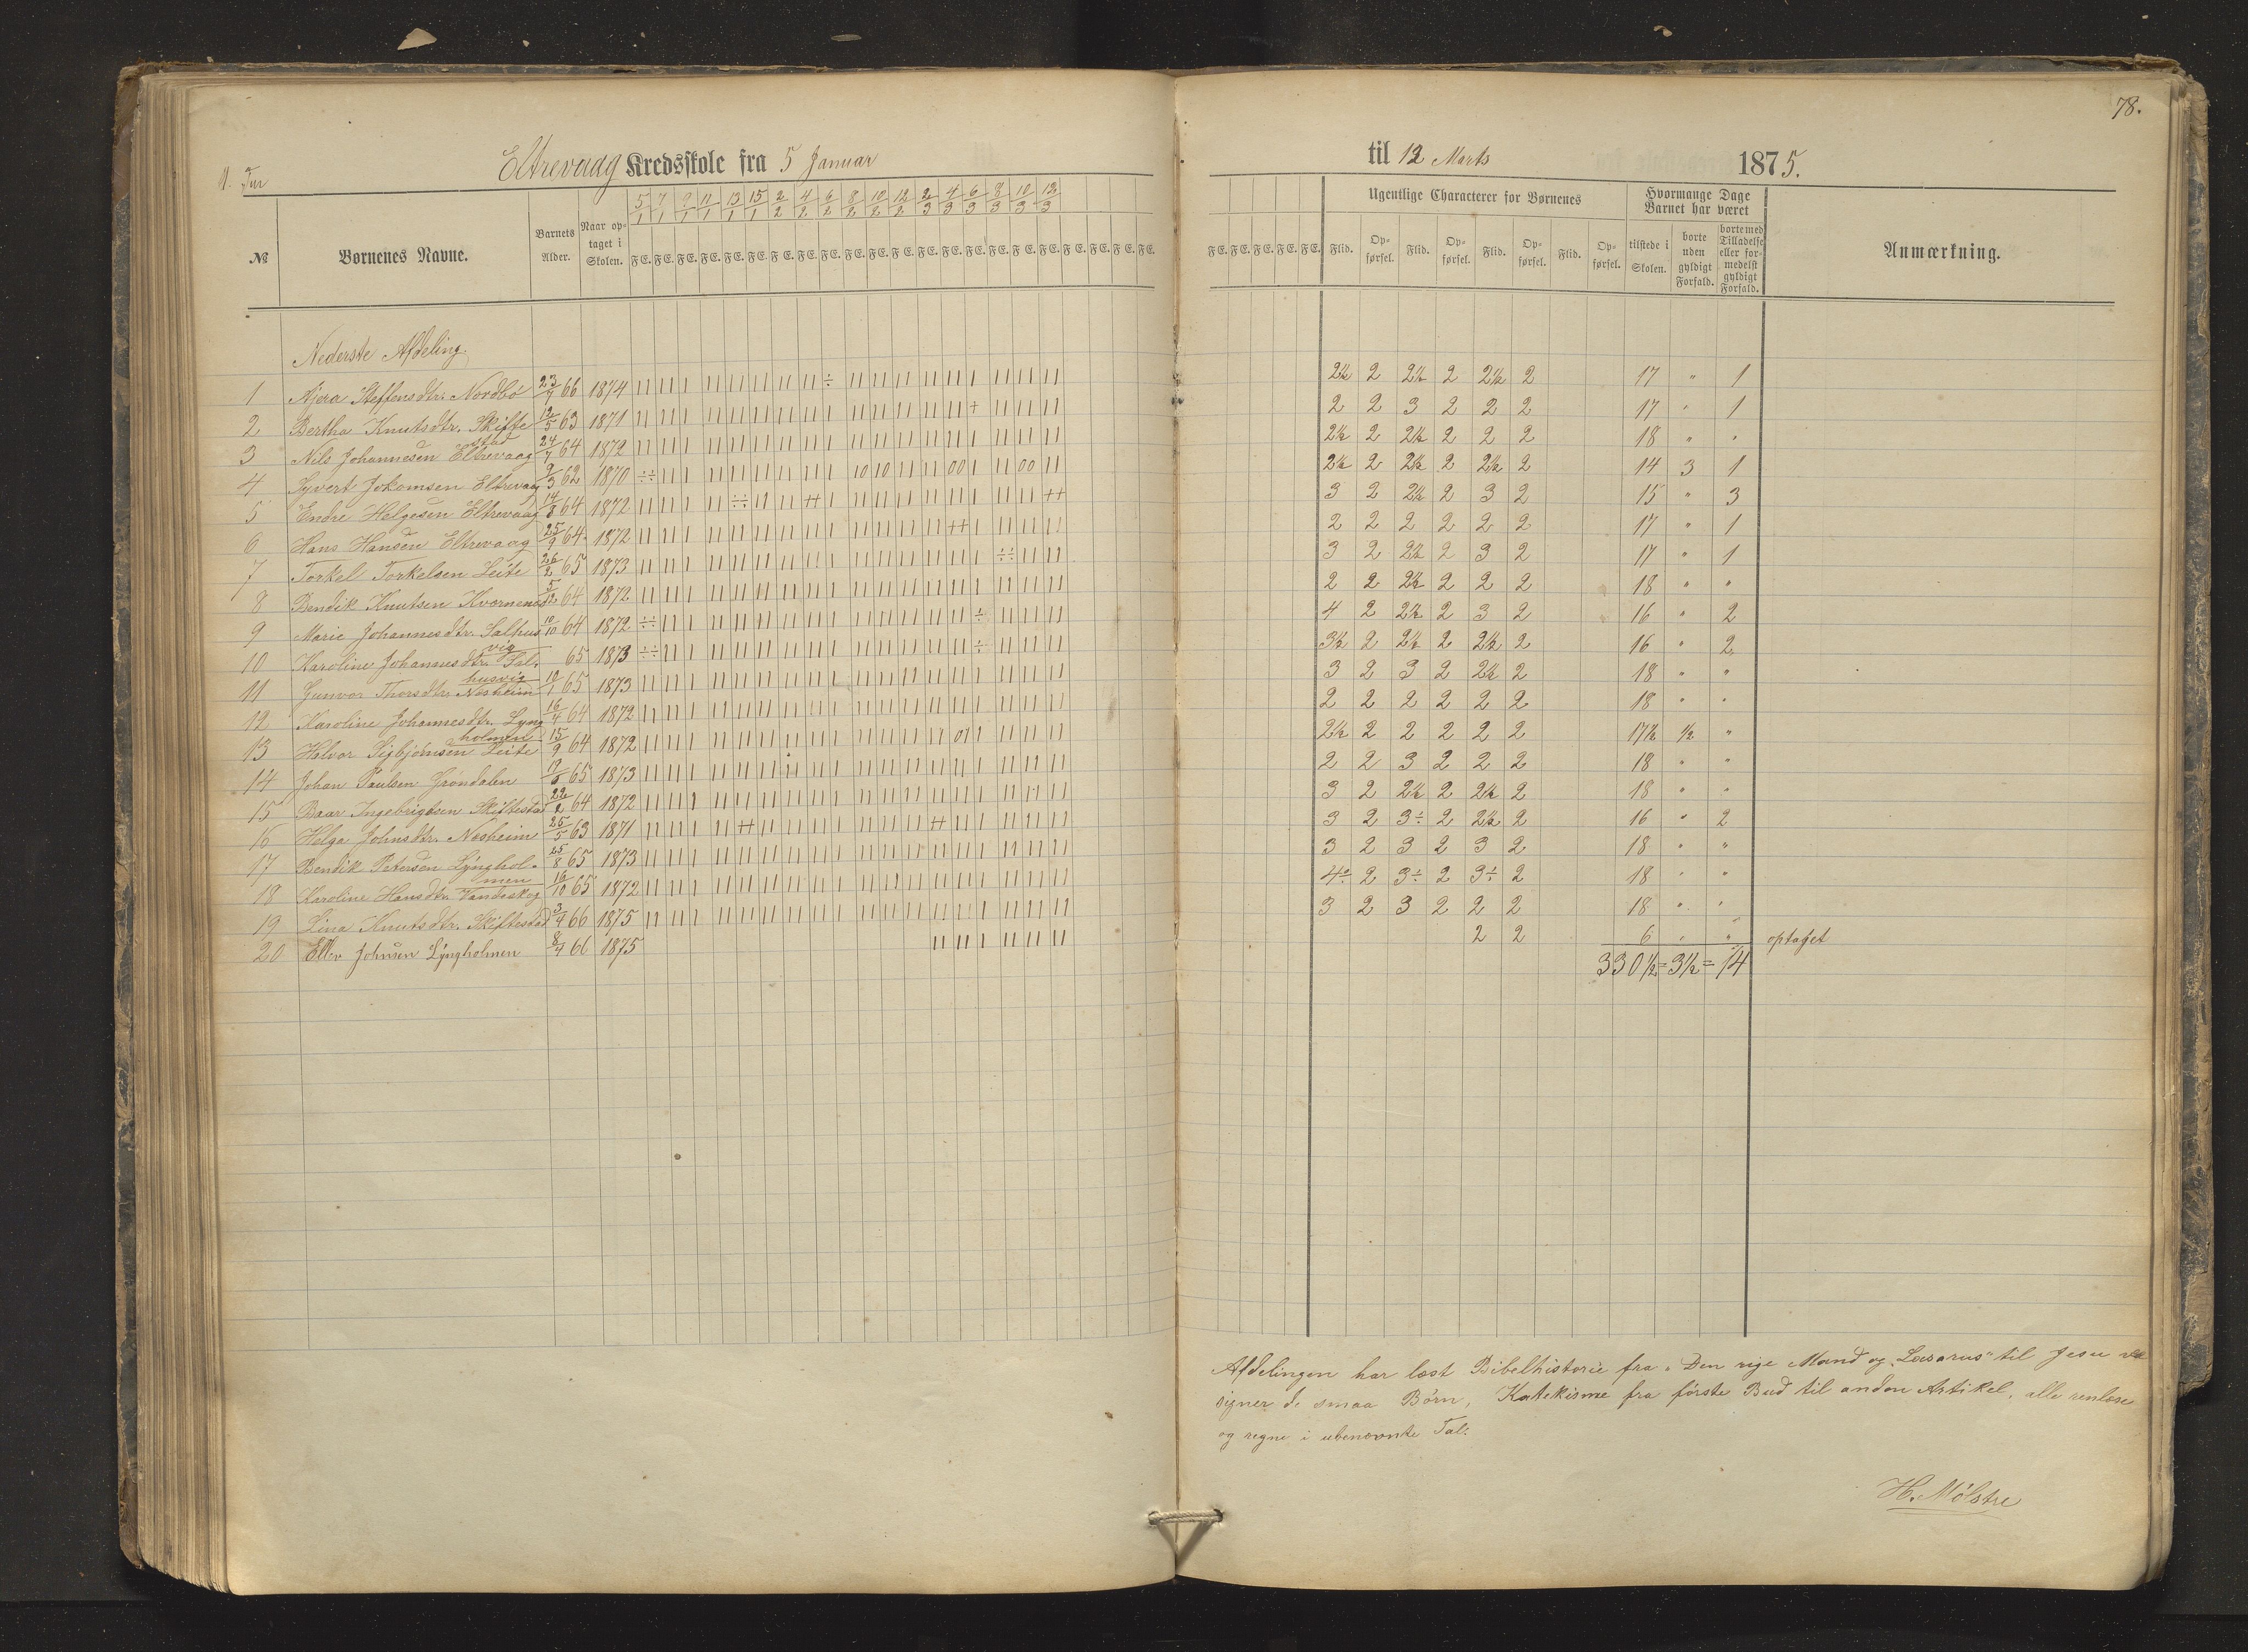 78.
1. Tur
Eltrevaag Kredsskole fra 5 Januar til 12 Marts 1875.
5/1 7/1 9/1 11/1 13/1 15/1 2/2 4/2 6/2 8/2 10/2 12/2 2/3 4/3 6/3 8/3 10/3 12/3
№ Børnenes Navne. Barnets Alder. Naar optaget i Skolen. F E. F E. F E. F E. F E. F E. F E. F E. F E. F E. F E. F E. F E. F E. F E. F E. F E. F E. F E. F E. F E. F E.
F E. F E. F E. F E. F E. Ugentlige Characterer for Børnenes Flid. Opførsel. Flid. Opførsel. Flid. Opførsel. Flid. Opførsel.
Hvormange Dage Barnet har været tilstede i Skolen. borte uden gyldigt Forfald. borte med Tilladelse eller formedelst gyldigt Forfald. Anmærkning.
Nederste Afdeling.
1 Steffensdtr. Nordbö 23/7 66 1874 2½ 2 2½ 2 2½ 2 17 " 1
2 Bertha Knutsdtr. Skiftestad 12/5 63 1871 2 2 3 2 2 2 17 " 1
3 Nils Johannesen Eltrevaag 24/7 64 1872 2½ 2 2½ 2 2 2 18 " "
4 Syvert Eltrevaag 9/3 62 1870 2½ 2 2½ 2 2½ 2 14 3 1
5 Endre Helgesen Eltrevaag 14/8 64 1872 3 2 2½ 2 3 2 15 " 3
6 Hans Hansen Eltrevaag 25/9 64 1872 2 2 2 2 2 2 17 " 1
7 Torkel Torkelsen Leite 26/2 65 1873 3 2 2½ 2 3 2 17 " 1
8 Bendik Knutsen 5/12 64 1872 2 2 2½ 2 2 2 18 " "
9 Marie Johannesdtr. Salhusvig 10/10 64 1872 4 2 2½ 2 3 2 16 " 2
10 Karoline Johannesdtr. Salhusvig 65 1873 3½ 2 2½ 2 2½ 2 16 " 2
11 Gunvor Thorsdtr. Nesheim 10/1 65 1873 3 2 3 2 2½ 2 18 " "
12 Karoline Johannesdtr. Lyngholmen 16/4 64 1872 2 2 2 2 2 2 18 " "
13 Halvor Sigbjörnsen Leite 15/9 64 1872 2½ 2 2 2 2 2 17½ ½ "
14 Johan Paulsen Gröndalen 65 1873 2 2 3 2 2 2 18 " "
15 Baar Ingebrigtsen Skiftestad 22/2 64 1872 3 2 2½ 2 2½ 2 18 " "
16 Helga Johnsdtr. Nesheim 25/5 63 1871 3 2 3÷ 2 2½ 2 16 " 2
17 Bendik Petersen Lyngholmen 25/8 65 1873 3 2 3 2 3 2 18 " "
18 Karoline Hansdtr. Vandeskog 16/10 65 1872 4÷ 2 3÷ 2 3÷ 2 18 " "
19 Lina Knutsdtr. Skiftestad 3/4 66 1875 3 2 3 2 2 2 18 " "
20 Johnsen Lyngholmen 8/4 66 1875 2 2 6 " " optaget
330½ = 3½ = 14
Afdelingen har læst Bibelhistorie fra "Den rige Mand og Lasarus" til Jesu vel
signer de smaa Börn, Katekisme fra förste Bud til anden Artikel, alle renlæse
og regne i ubenævnte Tal.
H. Mölstre